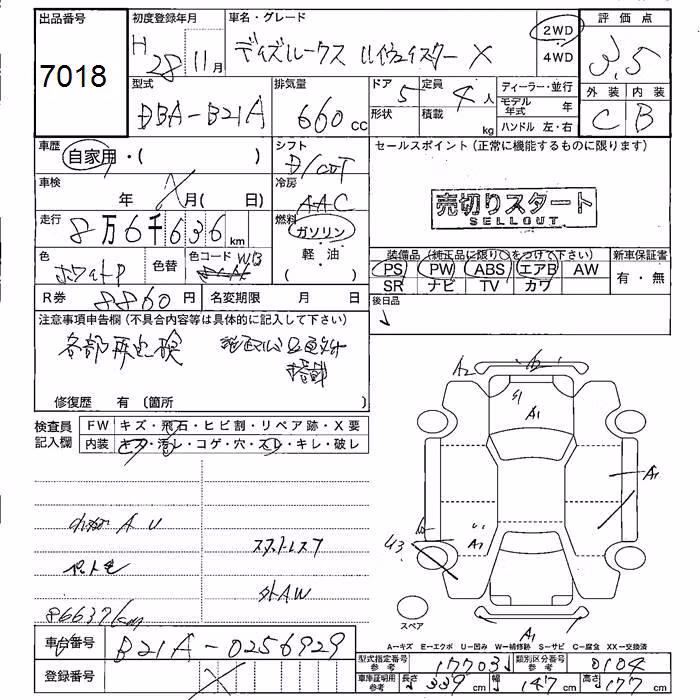 出品番号 初度登録年月 車名・グレード 評価点
7018 H 28 11月 2WD 4WD 3.5
型式 排気量 ドア形状 定員 積載 ディーラー・並行 外装 内装
DBA-B21A 660 CC 5 4人 kg モデル年式 年 C B
ハンドル 左・右
車歴 シフト セールスポイント(正常に機能するものに限ります)
自家用・( )
車検 冷房
年 月( 日) AAC 売切りスタート
SELLOUT
走行 燃料
8万6千636 km ガソリン
軽・油
( )
色 色替 色コード 装備品(純正品に限り○をつけて下さい) 新車保証書
ホワイトP PS PW ABS エアB AW 有・無
SR ナビ TV カワ
R券 8860円 名変期限 月 日 後日品
注意事項申告欄(不具合内容等は具体的に記入して下さい)
修復歴 有(箇所 )
検査員記入欄 FW キズ・飛石・ヒビ割・リペア跡・X要
内装 キズ・汚レ・コゲ・穴・スレ・キレ・破レ
A2
A1
A1
外AW
86637km
スペア
A1
A-キズ E-エクボ U-凹み W-補修跡 S-サビ C-腐食 XX-交換済
車台番号 B21A-0256929
登録番号
型式指定番号 参考 17703 類別区分番号 参考 0104
車庫証明用 参考 長さ 339cm 幅 147cm 高さ 177cm